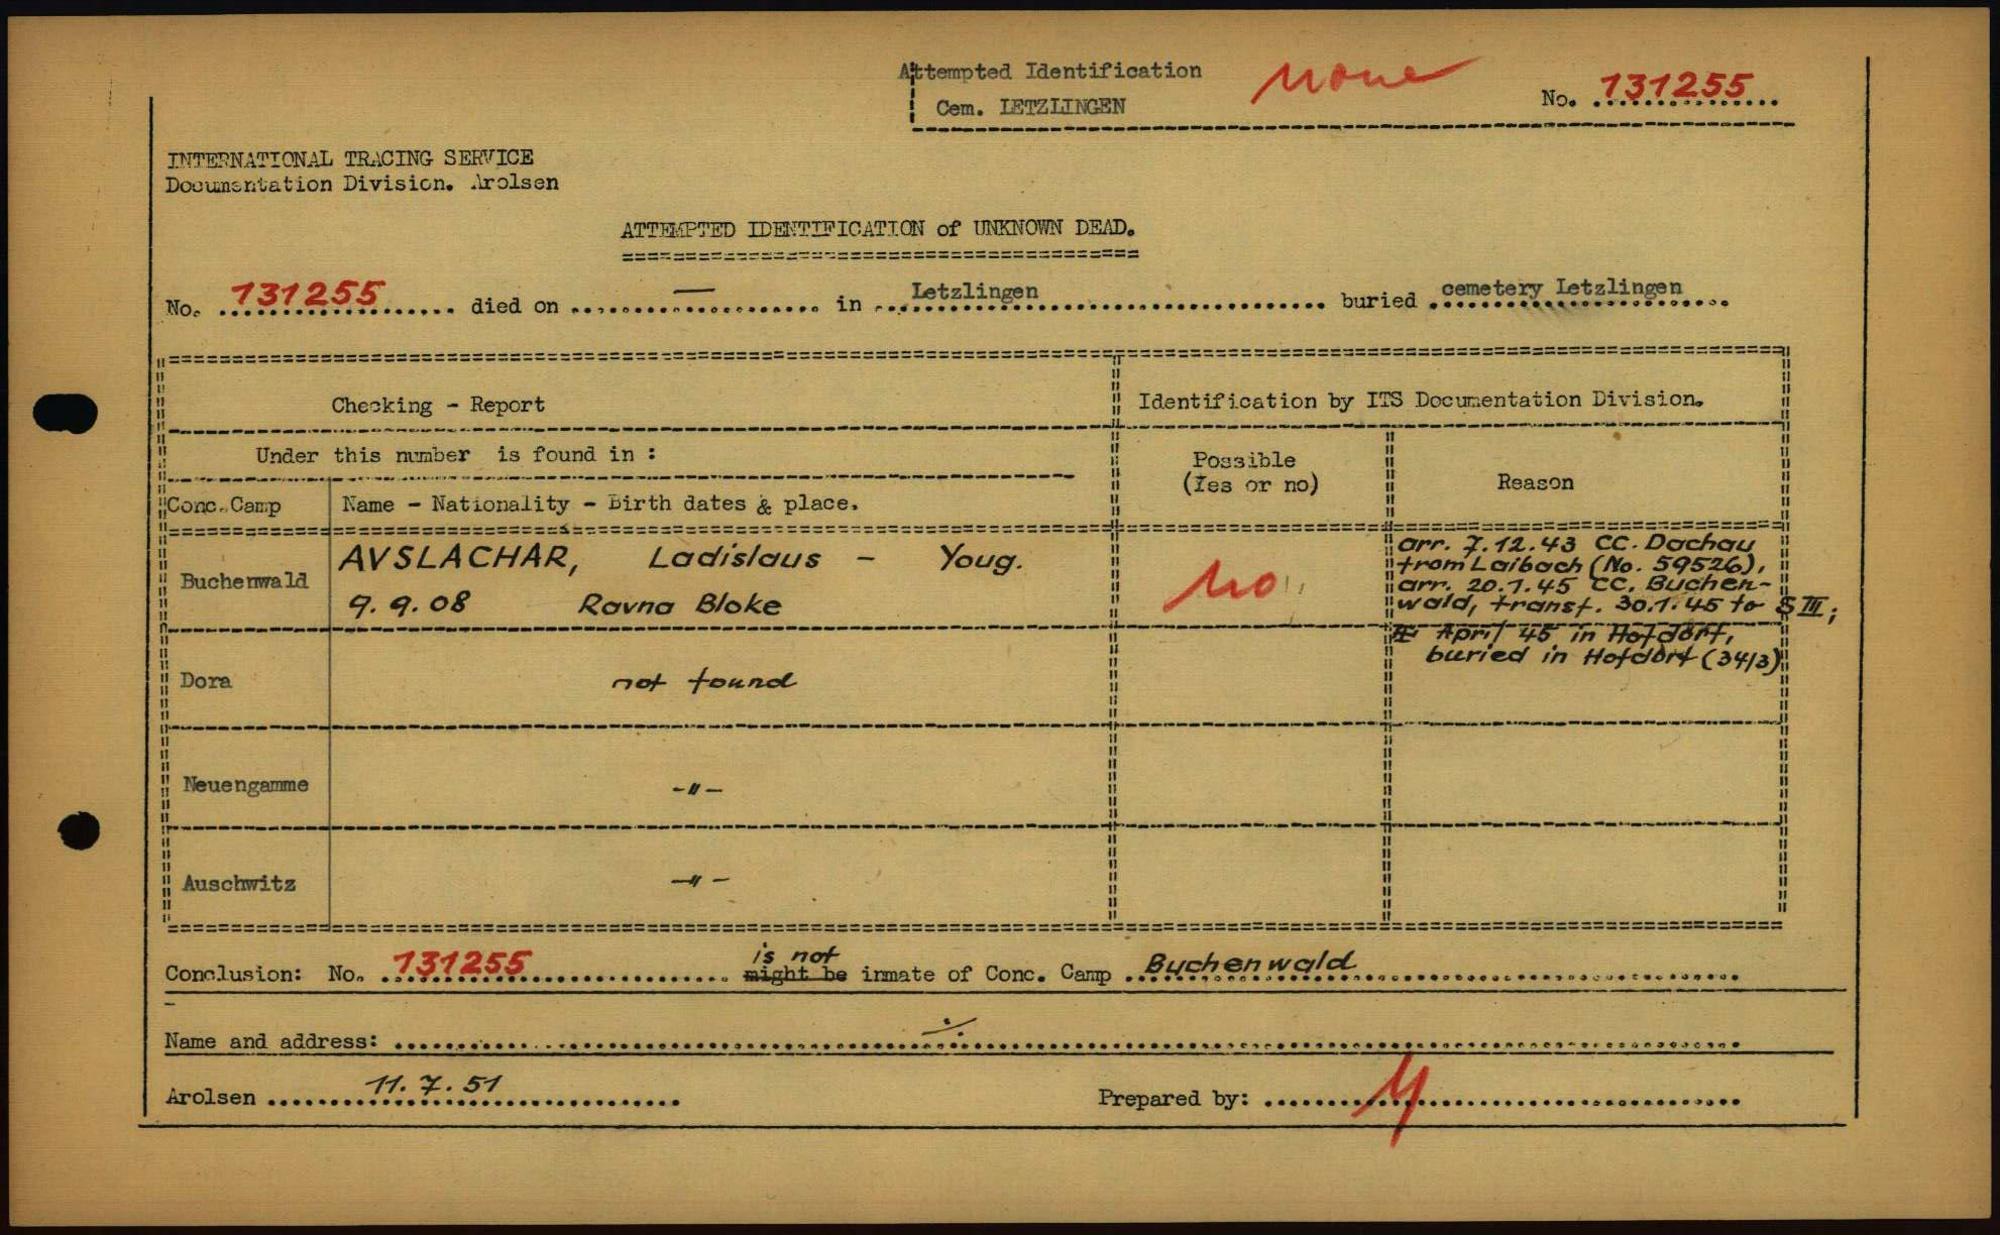 Attempted Identification none
Cem. LETZLINGEN No. 131255
INTERNATIONAL TRACING SERVICE
Documentation Division. Arolsen
ATTEMPTED IDENTIFICATION of UNKNOWN DEAD.
No. 131255 died on — in Letzlingen buried cemetery Letzlingen
Checking - Report
Identification by ITS Documentation Division.
Under this number is found in :
Possible
(Yes or no)
Reason
Conc.Camp Name - Nationality - Birth dates & place.
Buchenwald
AVSLACHAR, Ladislaus - Youg.
9.9.08 Ravna Bloke
no
arr. 7.12.43 CC. Dachau
from Laibach (No. 59526),
arr. 20.1.45 CC. Buchen-
wald, transf. 30.1.45 to S III;
April 45 in Hofdorf,
buried in Hofdorf (34/3)
Dora not found
Neuengamme -"-
Auschwitz -"-
is not
Conclusion: No. 131255 might be inmate of Conc. Camp Buchenwald
Name and address: ./.
Arolsen 11.7.51 Prepared by: